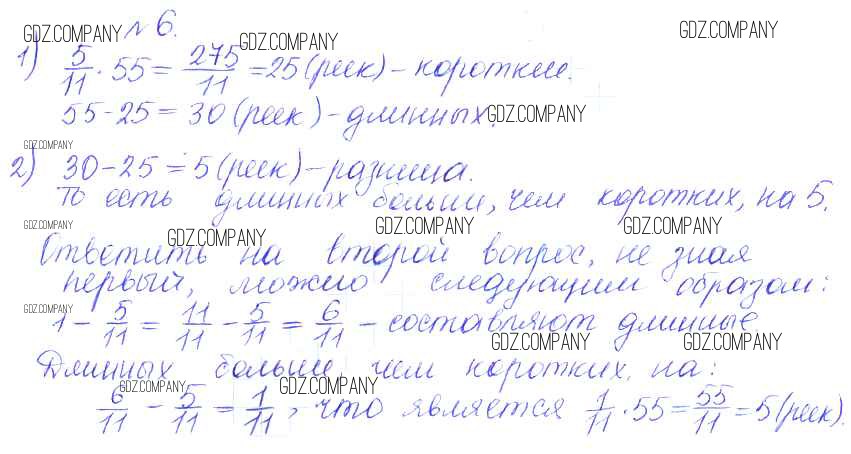 GDZ.COMPANY № 6. GDZ.COMPANY GDZ.COMPANY
1) 5/11 · 55 = 275/11 = 25 (реек) - короткие.
55 - 25 = 30 (реек) - длинных. GDZ.COMPANY
GDZ.COMPANY
2) 30 - 25 = 5 (реек) - разница.
То есть длинных больше, чем коротких, на 5.
GDZ.COMPANY GDZ.COMPANY GDZ.COMPANY GDZ.COMPANY
Ответить на второй вопрос, не зная
первый, можно следующим образом:
GDZ.COMPANY
1 - 5/11 = 11/11 - 5/11 = 6/11 - составляют длинные
GDZ.COMPANY GDZ.COMPANY
Длинных больше чем коротких, на:
GDZ.COMPANY GDZ.COMPANY
6/11 - 5/11 = 1/11, что является 1/11 · 55 = 55/11 = 5 (реек).